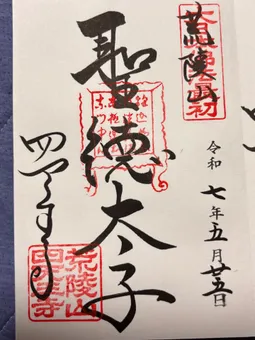 大日本佛法最初
荒陵山
令和七年五月廿五日
聖徳太子
四天王寺
荒陵山
四天王寺